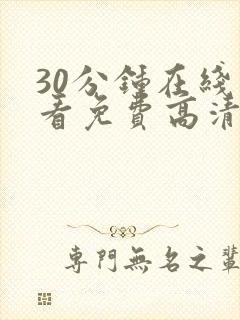 30分鍾在綫
看免費高清
專門無名之輩